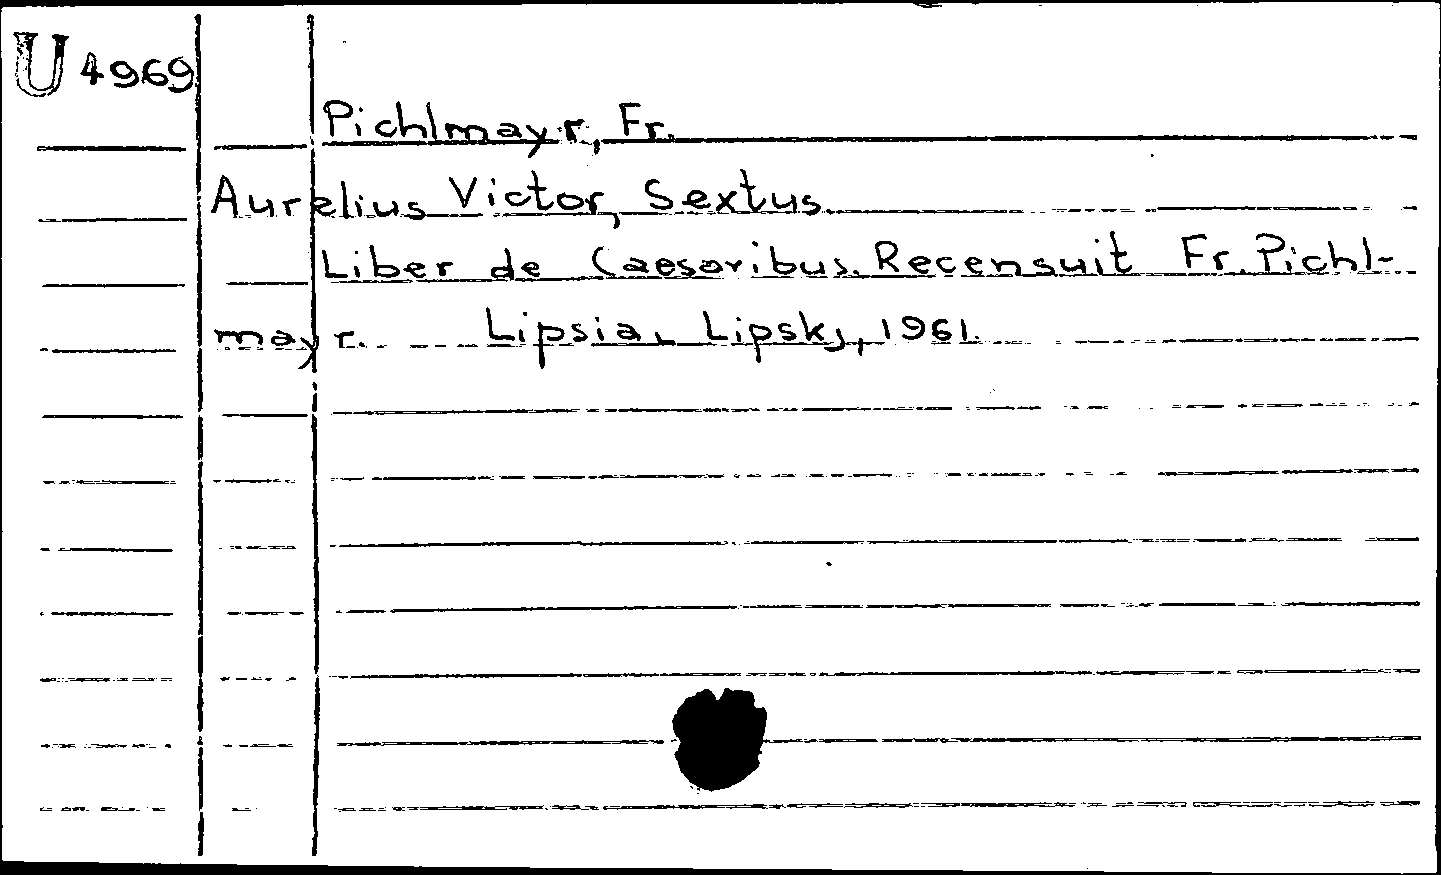 U 4969
Pichlmayr, Fr.
Aurelius Victor, Sextus
Liber de Caesaribus. Recensuit Fr. Pichl-
mayr. Lipsia, Lipskj, 1961.